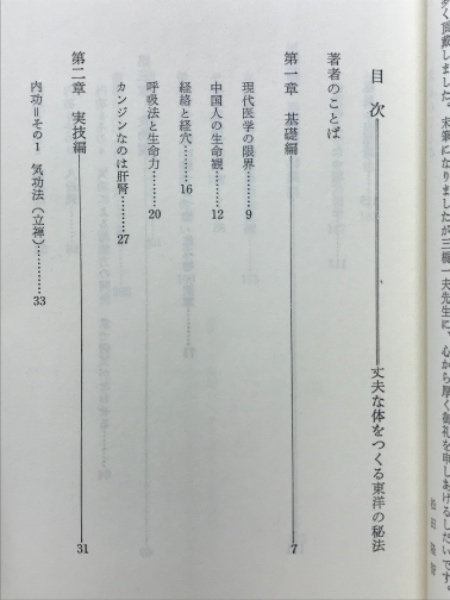 多く頂戴しました。末筆になりましたが三橋一夫先生に、心から厚く御礼を申しあげるしだいです。
松田隆智
目次 丈夫な体をつくる東洋の秘法
著者のことば
第一章 基礎編 7
現代医学の限界………9
中国人の生命観………12
経絡と経穴………16
呼吸法と生命力………20
カンジンなのは肝腎………27
第二章 実技編 31
内功＝その1 気功法（立禅）………33